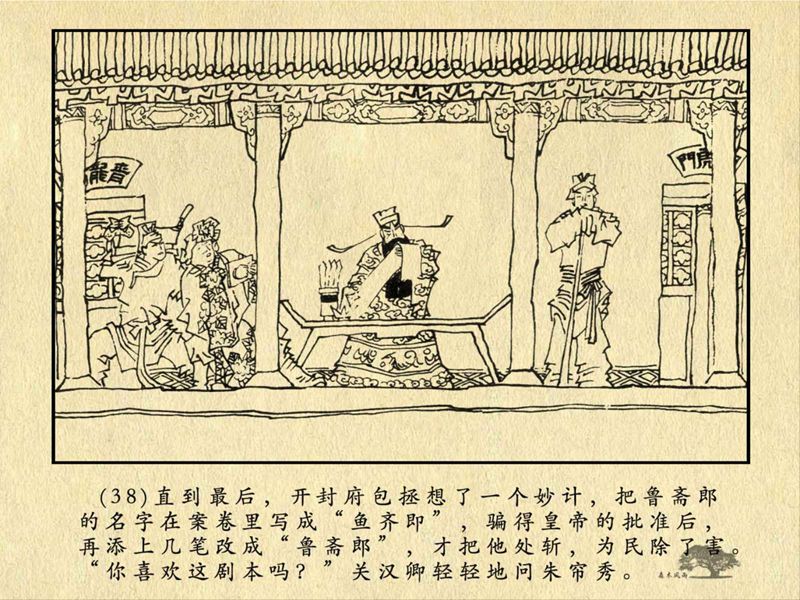 晉龍
虎門
(38)直到最后，开封府包拯想了一个妙计，把鲁斋郎
的名字在案卷里写成“鱼齐即”，骗得皇帝的批准后，
再添上几笔改成“鲁斋郎”，才把他处斩，为民除了害。
“你喜欢这剧本吗？”关汉卿轻轻地问朱帘秀。